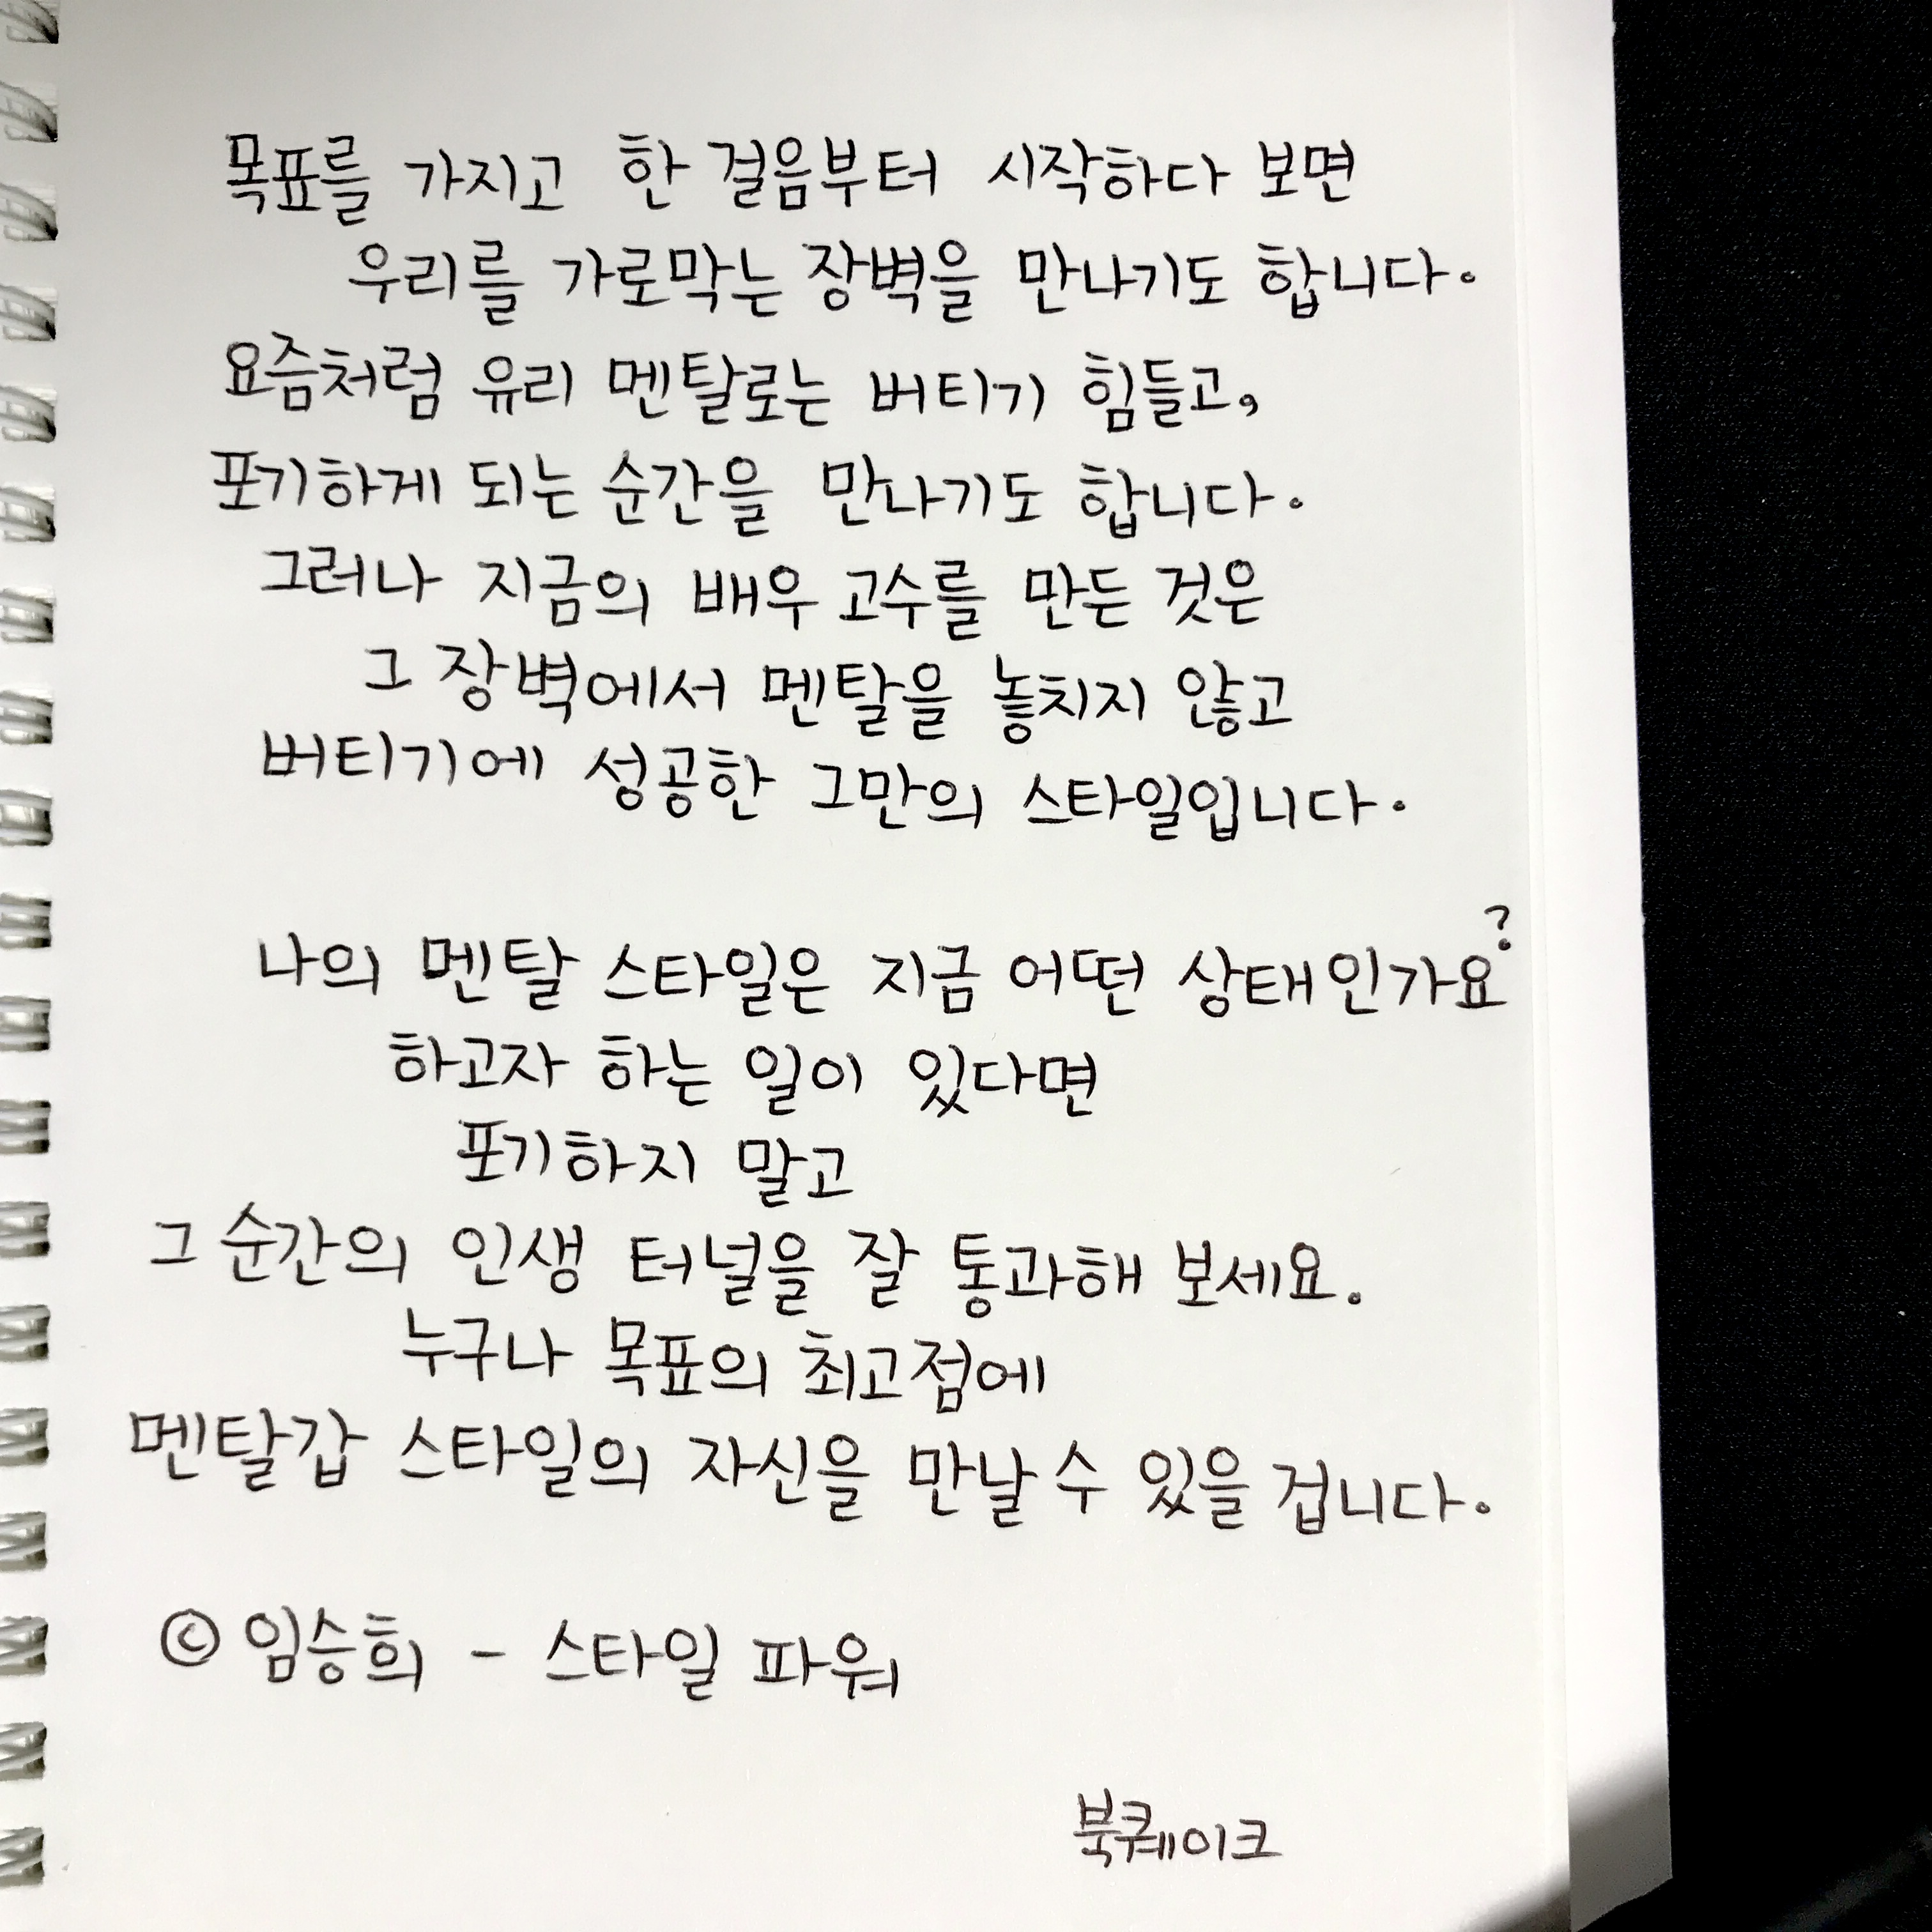 목표를 가지고 한 걸음부터 시작하다 보면
우리를 가로막는 장벽을 만나기도 합니다.
요즘처럼 유리 멘탈로는 버티기 힘들고,
포기하게 되는 순간을 만나기도 합니다.
그러나 지금의 배우 고수를 만든 것은
그 장벽에서 멘탈을 놓치지 않고
버티기에 성공한 그만의 스타일입니다.
나의 멘탈 스타일은 지금 어떤 상태인가요?
하고자 하는 일이 있다면
포기하지 말고
그 순간의 인생 터널을 잘 통과해 보세요.
누구나 목표의 최고점에
멘탈갑 스타일의 자신을 만날 수 있을 겁니다.
© 임승희 - 스타일 파워
북퀘이크